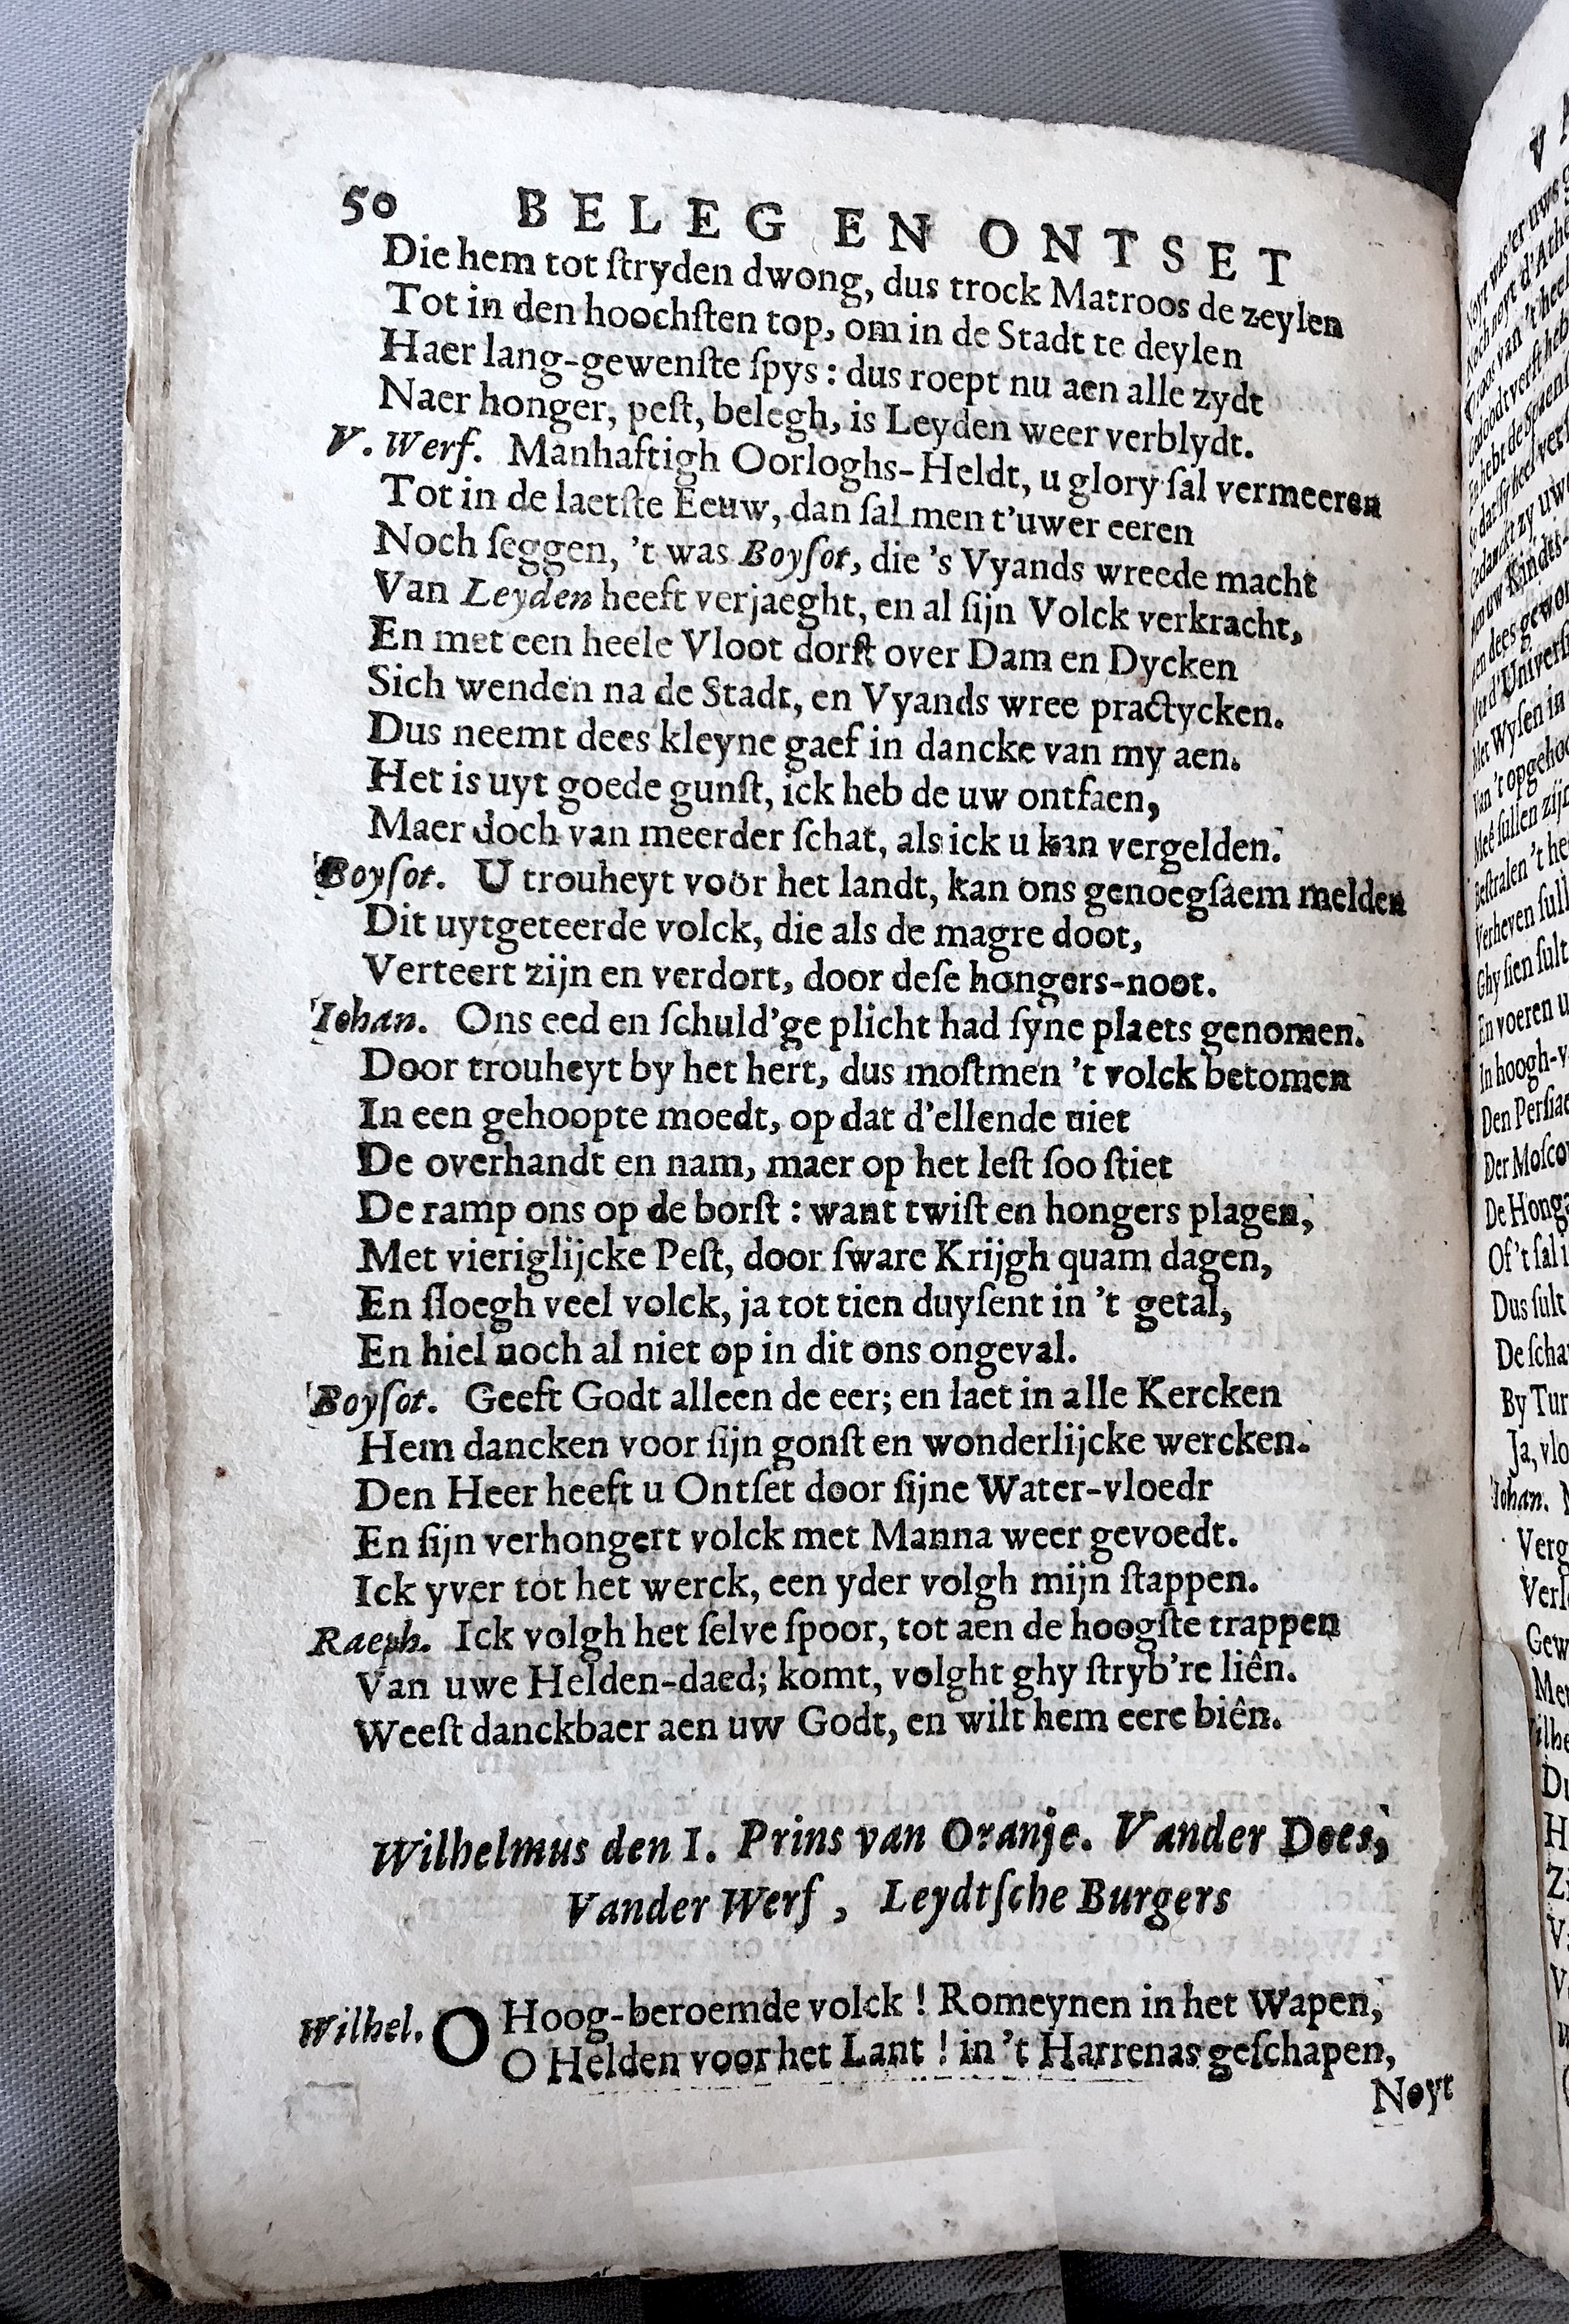 50 BELEG EN ONTSET
Die hem tot ſtryden dwong, dus trock Matroos de zeylen
Tot in den hoochſten top, om in de Stadt te deylen
Haer lang-gewenſte ſpys : dus roept nu aen alle zydt
Naer honger, peſt, belegh, is Leyden weer verblydt.
V. Werf. Manhaftigh Oorloghs-Heldt, u glory ſal vermeeren
Tot in de laetſte Eeuw, dan ſal men t'uwer eeren
Noch ſeggen, 't was Boyſot, die 's Vyands wreede macht
Van Leyden heeft verjaeght, en al ſijn Volck verkracht,
En met een heele Vloot dorſt over Dam en Dycken
Sich wenden na de Stadt, en Vyands wree practycken.
Dus neemt dees kleyne gaef in dancke van my aen.
Het is uyt goede gunſt, ick heb de uw ontfaen,
Maer doch van meerder ſchat, als ick u kan vergelden.
Boyſot. U trouheyt voor het landt, kan ons genoegſaem melden
Dit uytgeteerde volck, die als de magre doot,
Verteert zijn en verdort, door deſe hongers-noot.
Iohan. Ons eed en ſchuld'ge plicht had ſyne plaets genomen.
Door trouheyt by het hert, dus moſtmen 't volck betomen
In een gehoopte moedt, op dat d'ellende niet
De overhandt en nam, maer op het leſt ſoo ſtiet
De ramp ons op de borſt : want twiſt en hongers plagen,
Met vieriglijcke Peſt, door ſware Krijgh quam dagen,
En ſloegh veel volck, ja tot tien duyſent in 't getal,
En hiel noch al niet op in dit ons ongeval.
Boyſot. Geeft Godt alleen de eer; en laet in alle Kercken
Hem dancken voor ſijn gonſt en wonderlijcke wercken.
Den Heer heeft u Ontſet door ſijne Water-vloedr
En ſijn verhongert volck met Manna weer gevoedt.
Ick yver tot het werck, een yder volgh mijn ſtappen.
Raeph. Ick volgh het ſelve ſpoor, tot aen de hoogſte trappen
Van uwe Helden-daed; komt, volght ghy ſtryb're liên.
Weeſt danckbaer aen uw Godt, en wilt hem eere biên.
Wilhelmus den I. Prins van Oranje. Vander Does,
Vander Werf, Leydtſche Burgers
Wilhel. O Hoog-beroemde volck ! Romeynen in het Wapen,
O Helden voor het Lant ! in 't Harrenas geſchapen,
Noyt